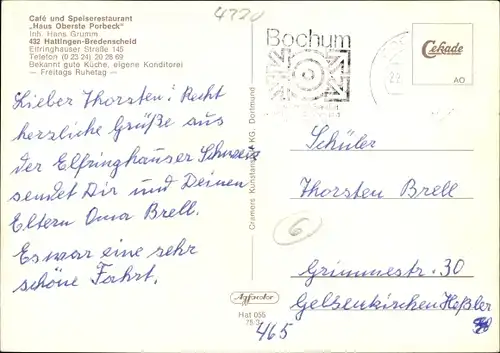 Café und Speiserestaurant
„Haus Oberste Porbeck"
Inh. Hans Grumm
432 Hattingen-Bredenscheid
Elfringhauser Straße 145
Telefon (0 23 24) 20 28 69
Bekannt gute Küche, eigene Konditorei
— Freitags Ruhetag —
4320
Bochum
Cekade
AO
Lieber Thorsten! Recht
herzliche Grüße aus
der Elfringhauser Schweiz
sendet Dir und Deinen
Eltern Oma Brell.
Es war eine sehr
schöne Fahrt.
Cramers Kunstanstalt KG, Dortmund
Schüler
Thorsten Brell
6
Grimmestr. 30
Gelsenkirchen Heßler
Agfacolor
Hat 055
465